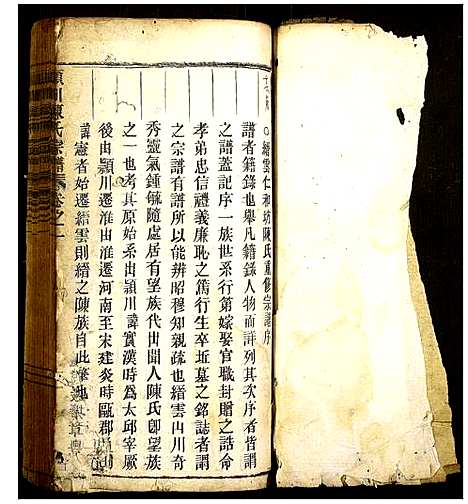 縉雲仁和坊陳氏重修宗譜序
譜者籍錄也舉凡籍錄人物而詳列其次序者皆謂
之譜蓋記序一族世系行第嫁娶官職封贈之誥命
孝弟忠信禮義廉恥之篤行生卒逝墓之銘誌者謂
之宗譜有譜所以能辨昭穆知親疏也縉雲山川奇
秀靈氣鍾毓隨處居有望族代出聞人陳氏卽望族
之一也考其原始系出頴川諱實漢時為太邱宰厥
後由頴川遷淮由淮遷河南至宋建炎時甌郡
諱憲者始遷縉雲則縉之陳族自此肇也
頴川陳氏宗譜卷之一